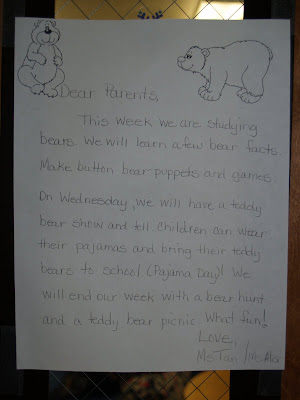 Dear Parents,
This week we are studying
bears. We will learn a few bear facts.
Make button bear puppets and games.
On Wednesday, we will have a teddy
bear show and tell. Children can wear
their pajamas and bring their teddy
bears to school (Pajama Day)! We
will end our week with a bear hunt
and a teddy bear picnic. What fun!
Love,
Ms. Tan /